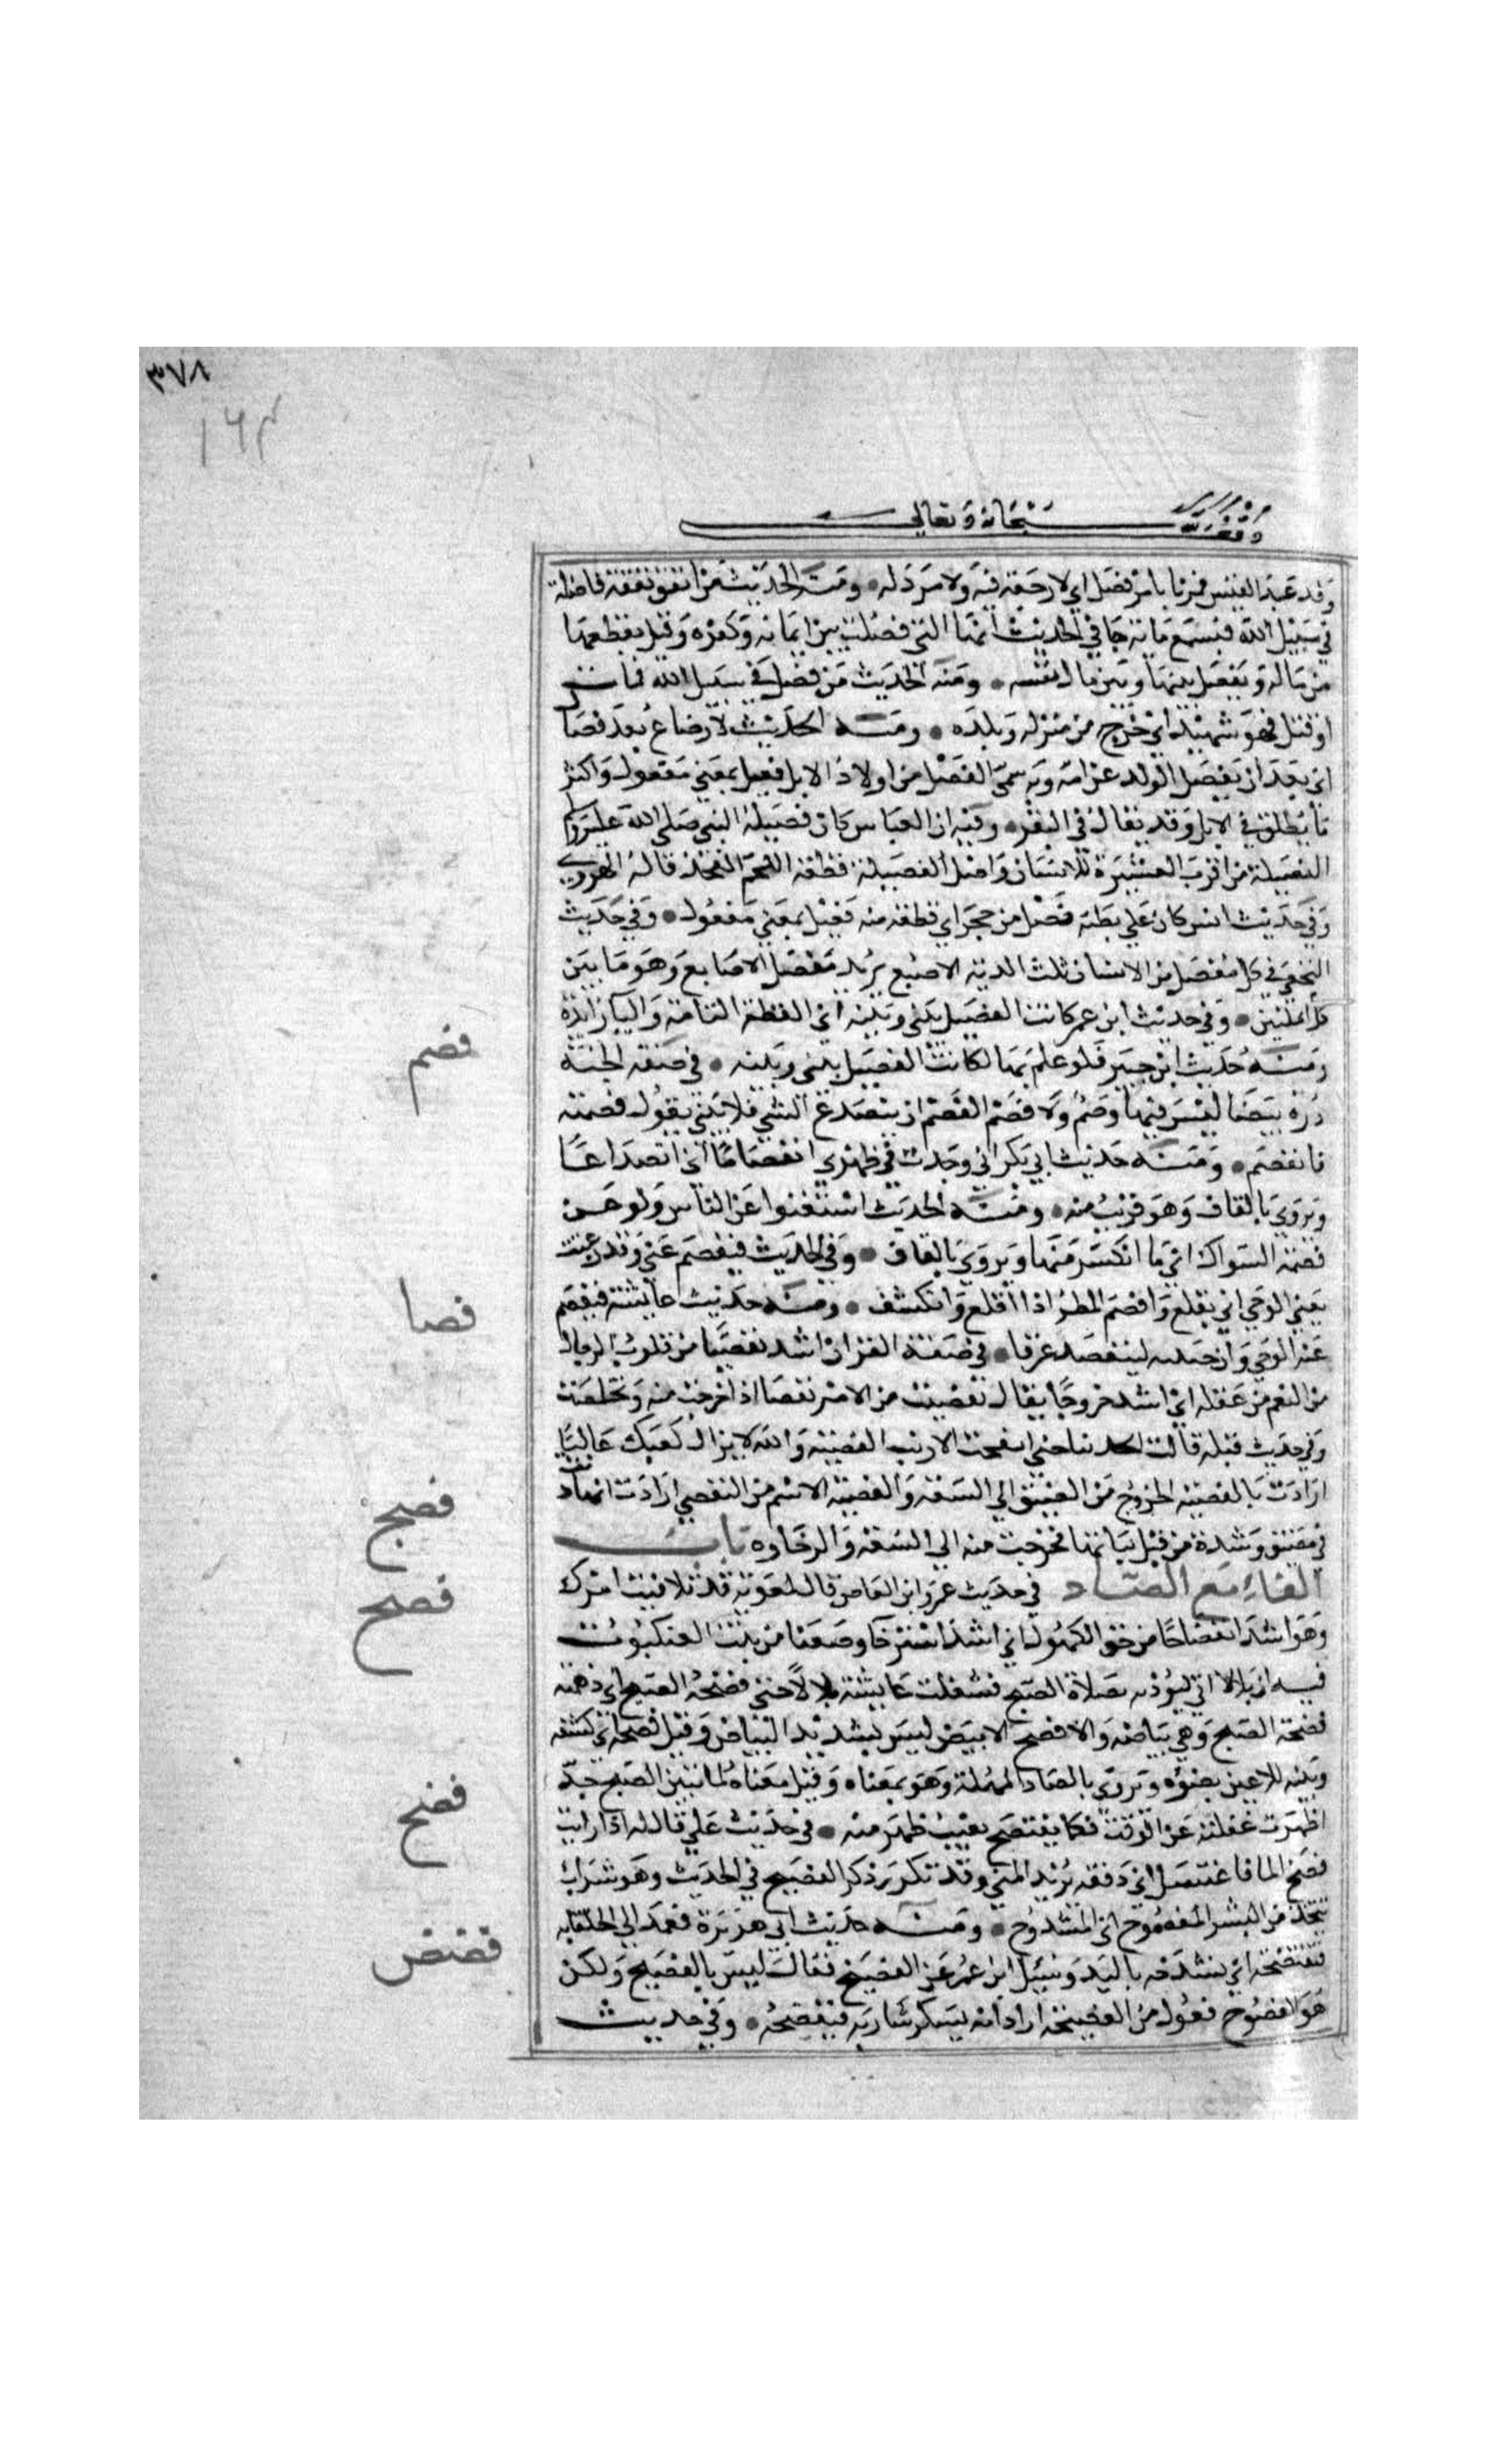 ٣٧٨
١٦٤
وقف لله سبحانه وتعالى
وفد عبد القيس فمرنا بامر فصل اي لا رجعة فيه ولا مرد له ومنه الحديث من انفق نفقة فاصلة
في سبيل الله فبسبع ماية جا في الحديث انها التي فصلت بين ايمانه وكفره وقيل يقطعها
من ماله ويفصل بينها وبين مال نفسه ومنه الحديث من فصل في سبيل الله فمات
او قتل فهو شهيد اي خرج من منزله وبلده ومنه الحديث لا رضاع بعد فصال
اي بعد ان يفصل الولد عن امه وبه سمي الفصيل من اولاد الابل فعيل بمعني مفعول واكثر
ما يطلق في الابل وقد يقال في البقر وفيه ان العباس كان فصيلة النبي صلى الله عليه وسلم
الفصيلة من اقرب العشيرة للانسان واصل الفصيلة قطعة اللحم الفخذ قاله الهروي
وفي حديث انس كان علي بطنه فصيل من حجر اي قطعة منه فعيل بمعني مفعول وفي حديث
النخعي في كل مفصل من الانسان ثلث الدية الاصبع يريد مفصل الاصابع وهو ما بين
كل انملتين وفي حديث ابن عمر كانت الفيصل بيني وبينه اي القطعة التامة واليا زايدة
ومنه حديث ابن جبير فلو علم بها لكانت الفيصل بيني وبينه في صفة الجنة
فصم
درة بيضا ليس فيها وصم ولا فصم الفصم ان ينصدع الشي فلا يبين يقول فصمته
فانفصم ومنه حديث ابي بكر اني وجدت في ظهري انفصاما اي انصداعا
ويروي بالقاف وهو قريب منه ومنه الحديث استغنوا عن الناس ولو عن
فصمة السواك اي ما انكسر منها ويروي بالقاف وفي الحديث فيفصم عني وقد وعيت
يعني الوحي اي يقلع وافصم المطر اذا اقلع وانكشف ومنه حديث عايشة فيفصم
فصا
عنه الوحي وان جبينه ليتفصد عرقا في صفة القران اشد تفصيا من قلوب الرجال
من النعم من عقله اي اشد خروجا يقال تفصيت من الامر تفصا اذا خرجت منه وتخلصت
وفي حديث قيلة قالت الحديبا حين انتفجت الارنب الفصية والله لا يزال كعبك عاليا
ارادت بالفصية الخروج من الضيق الي السعة والفصية الاسم من التفصي ارادت انها كانت
في مضيق وشدة من قبل بناتها فخرجت منه الي السعة والرخاوه باب
فصج
الفاء مع الضاد في حديث عمرو ابن العاص قال لمعوية قد تلافيت امرك
فصح
وهو اشد انفضاجا من حق الكهول اي اشد استرخا وضعفا من بيت العنكبوت
فيه ان بلالا اتي ليؤذنه بصلاة الصبح فشغلت عايشة بلالا حتي فضحه الصبح اي دهمته
فضحة الصبح وهي بياضه والافضح الابيض ليس بشديد البياض وقيل فضحه اي كشفه
وبينه للاعين بضوؤه ويروي بالصاد المهملة وهو بمعناه وقيل معناه لما تبين الصبح جدا
فضخ
ظهرت غفلته عن الوقت فكما يفتضح بعيب ظهر منه في حديث علي قال له اذا رايت
فضخ الما فاغتسل اي دفقه يريد المني وقد تكرر ذكر الفضيخ في الحديث وهو شراب
يتخذ من البسر المفضوخ اي المشدوخ ومنه حديث ابي هريرة فعمد الي الحلقانه
فضض
فنفتضخه اي نشدخه باليد وسئيل ابن عمر عن الفضيخ فقال ليس بالفضيخ ولكن
هو الفضوخ فعول من الفضيخة اراد انه يسكر شاربه فيفضخه وفي حديث